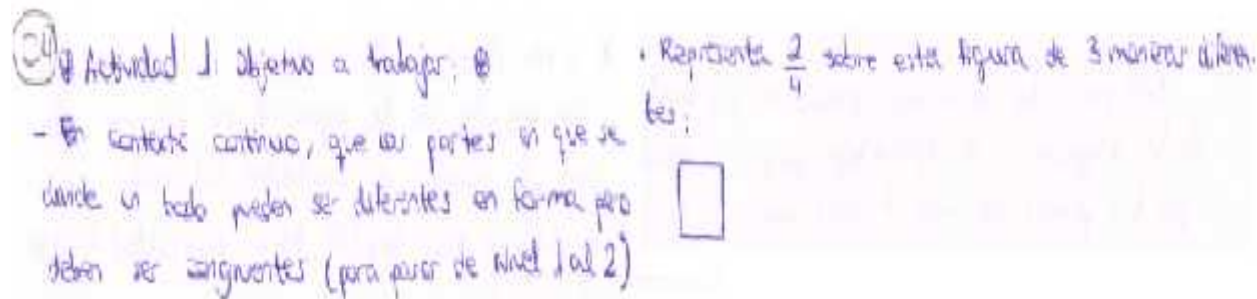 Actividad 1: Objetivo a trabajar:
- En contexto continuo, que las partes en que se
divide un todo pueden ser diferentes en forma pero
deben ser congruentes (para pasar de nivel 1 al 2)
· Representa 2/4 sobre esta figura de 3 maneras diferen-
tes: